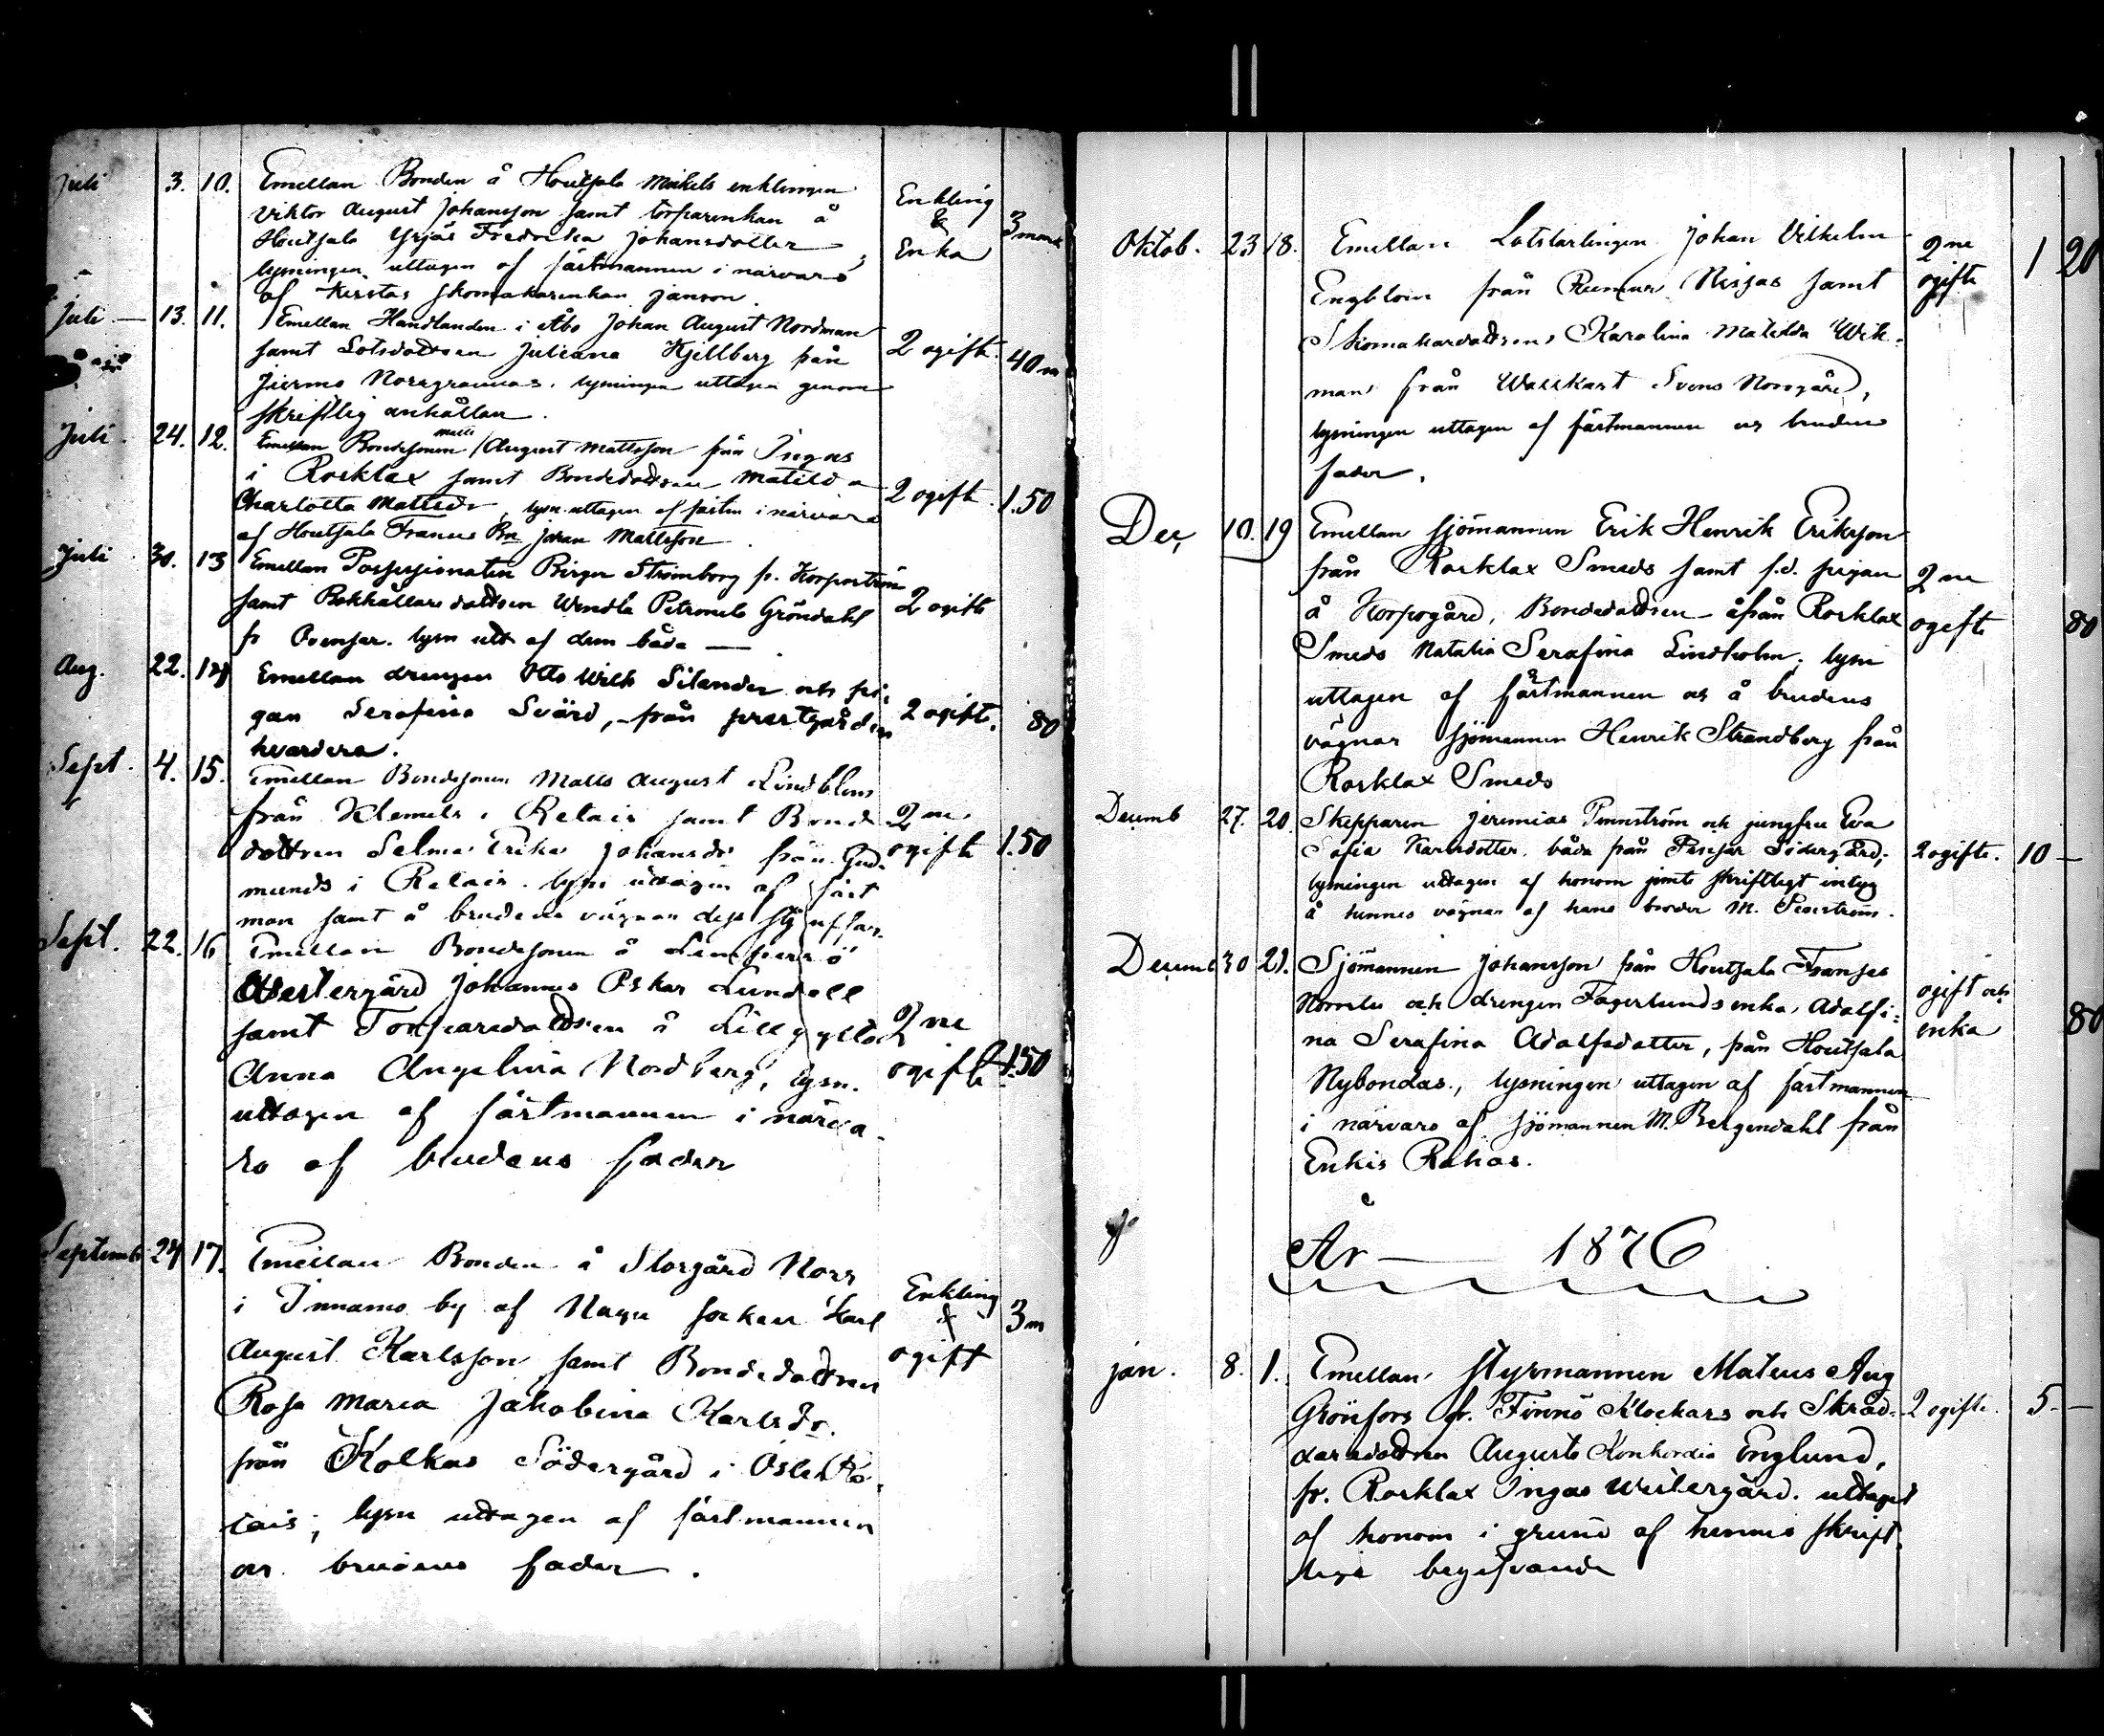 Juli 3. 10. Emellan Bonden å Houtsala Mickels enklingen Enkling
Viktor August Johansson samt torparenkan å & 3 mark
Houtsala Yrjäs Fredrika Johansdotter, Enka
lysningen uttagen af fästmannen i närvaro
af Kerstas skomakarenkan Janson.
Juli — 13. 11. Emellan Handlanden i Åbo Johan August Nordman
samt Lotsdottren Juliana Kjellberg från 2 ogifte. 40 m
Jermo Norrgrannas. lysningen uttagen genom
skriftlig anhållan.
Juli. 24. 12. Emellan Bondesonen Matts August Mattsson från Ingas
i Rosklax samt Bondedottren Matilda
Charlotta Mattsdr, lysn. uttagen af fästm i närvaro 2 ogifte. 1.50
af Houtsala Fransus Bn Johan Mattsson.
Juli 30. 13 Emellan Possessionaten Birger Strömborg fr. Korpoström
samt Bokhållaredottren Wendla Petronela Gröndahl 2 ogifte
fr Ovensor. lysn utt af dem båda —
Aug. 22. 14 Emellan drengen Otto Wilh Silander och pi-
gan Serafina Svärd, från prestgården 2 ogifte. 80
hvardera.
Sept. 4. 15. Emellan Bondesonen Matts August Lindblom
från Klemels i Retais samt Bonde 2ne
dottren Selma Erika Johansdr från Gud- ogifte 1.50
munds i Retais. lysn uttagen af fäst
man samt å brudens vägnar dess styffar.
Sept. 22. 16 Emellan Bondesonen å Lempersö
Westergård Johannes Oskar Lundell
samt Torparedottren å Lillgyltö 2ne
Anna Angelina Nordberg, lysn. ogifte 1.50
uttagen af fästmannen i närva-
ro af brudens fader
Septemb. 24 17. Emellan Bonden å Storgård Norr
i Innamo by af Nagu socken Karl Enkling & 3 m
August Karlsson samt Bondedottren ogift
Rosa Maria Jakobina Karlsdr.
från Kolkas Södergård i Öster Re-
tais; lysn uttagen af fästmannen
oc brudens fader.
Oktob. 23 18. Emellan Lotslärlingen Johan Vilhelm 2ne 1 20
Engblom från Rumar Nisjas samt ogifte
Skomakardottren Karolina Matilda Wik-
man från Wattkast Svens Norrgård,
lysningen uttagen af fästmannen oc brudens
fader.
Dec, 10. 19 Emellan sjömannen Erik Henrik Eriksson
från Rosklax Smeds samt f.d. pigan 2ne
å Korpogård, Bondedottren från Rosklax ogifte 80
Smeds Natalia Serafina Lindholm; lysn
uttagen af fästmannen oc å brudens
vägnar sjömannen Henrik Strandberg från
Rosklax Smeds
Decemb 27. 20. Skepparen Jeremias Pennström och jungfru Eva
Sofia Karlsdotter, båda från Södergård; 2 ogifte. 10 —
lysningen uttagen af honom jemte skriftligt intyg
å hennes vägnar af hans broder M.
Decemb 30 21. Sjömannen Johansson från Houtsala Fransas ogift och
Norrles och drengen Fagerlunds enka, Adolfi- enka 80
na Serafina Adolfsdotter, från Houtsala
Nybondas, lysningen uttagen af fästmannen
i närvaro af sjömannen M. Bergendahl från
Enkis Rakas.
År — 1876
Jan. 8. 1. Emellan, styrmannen Mateus Aug
Grönfors fr. Finnö Klockars och Skräd- 2 ogifte. 5. —
daredottren Augusta Konkordia Englund,
fr. Rosklax Ingas Westergård. uttaget
af honom i grund af hennes skrift-
liga begifvande